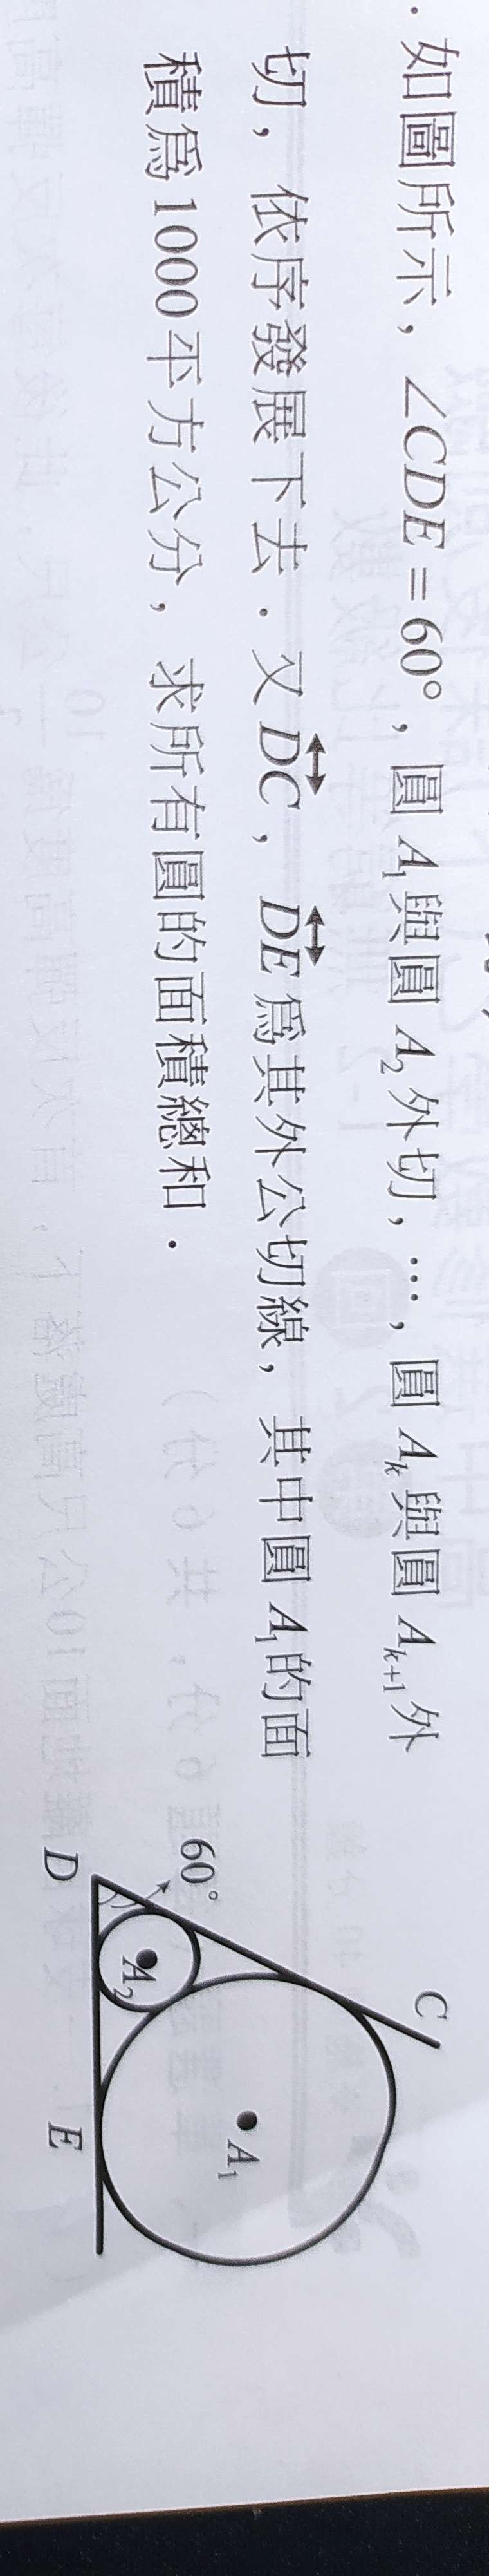 ．如圖所示，∠CDE = 60°，圓 A₁與圓 A₂外切，…，圓 Aₖ與圓 Aₖ₊₁外
切，依序發展下去．又 DC，DE 為其外公切線，其中圓 A₁的面
積為 1000 平方公分，求所有圓的面積總和．
C
60°
A₁
A₂
D
E